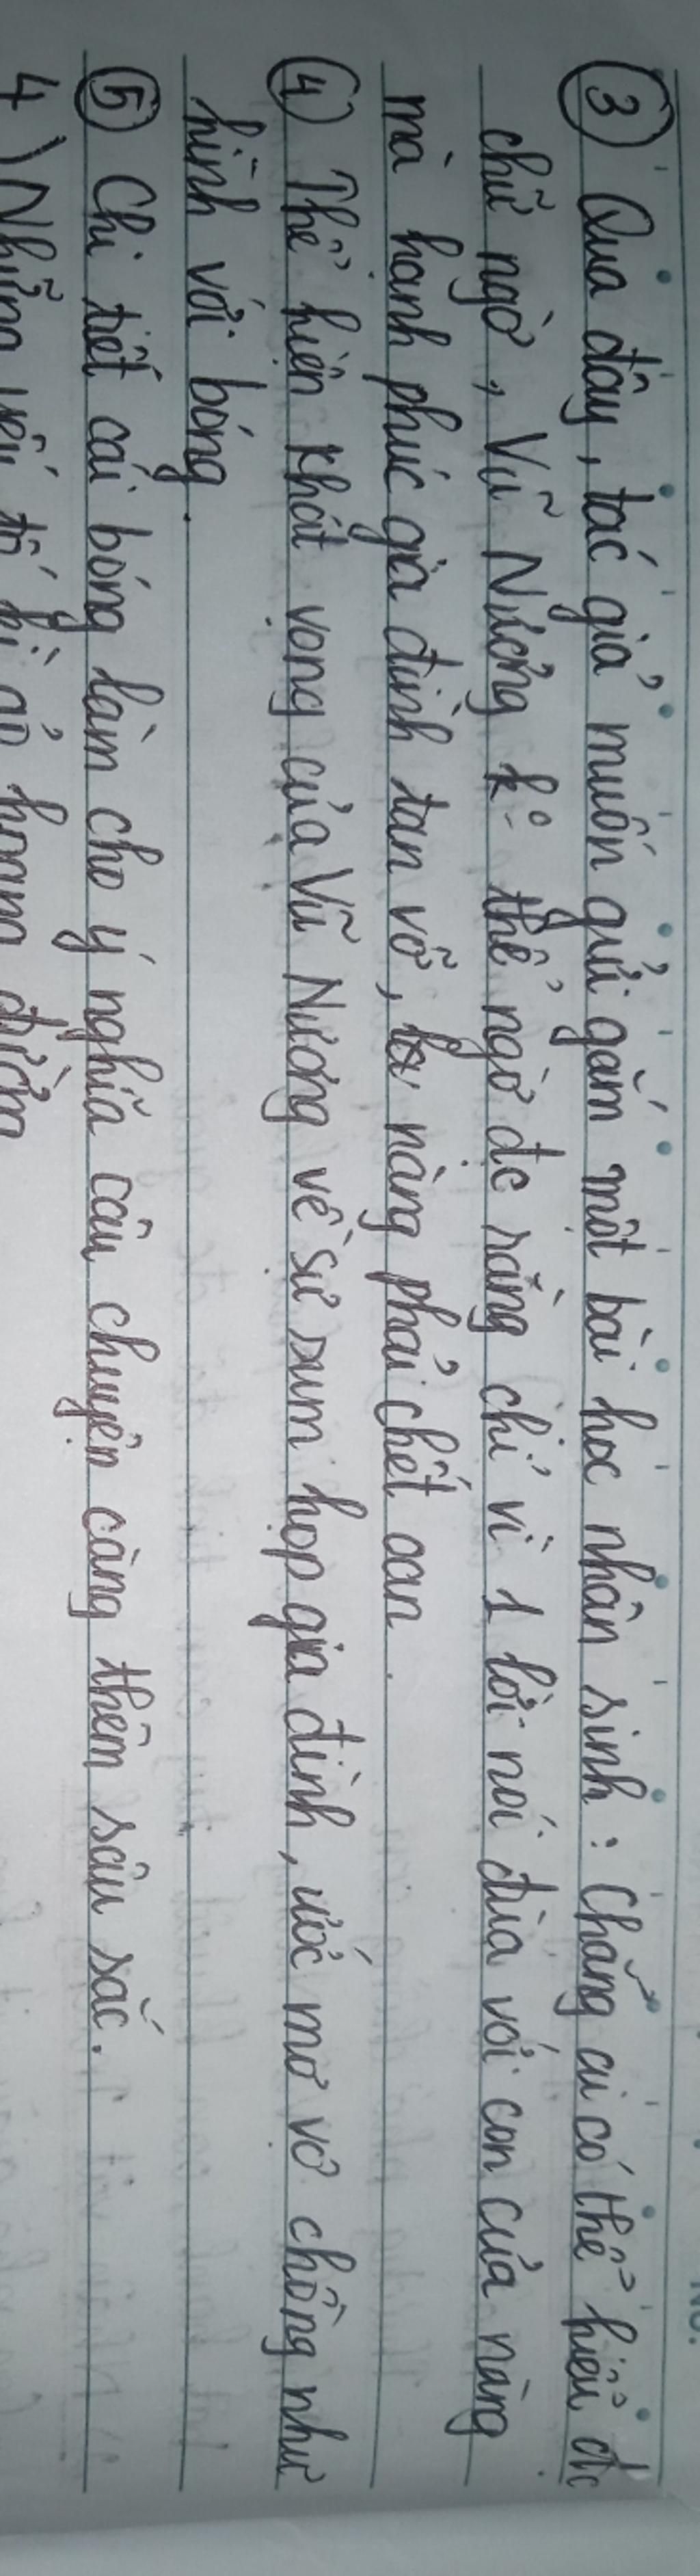 ③ Qua đây, tác giả muốn gửi gắm một bài học nhân sinh : Chẳng ai có thể hiểu đc
chữ ngờ, Vũ Nương ko thể ngờ đc rằng chỉ vì 1 lời nói đùa với con của nàng
mà hạnh phúc gia đình tan vỡ, nàng phải chết oan.
④ Thể hiện khát vọng của Vũ Nương về sự sum họp gia đình, ước mơ vợ chồng như
hình với bóng.
⑤ Chi tiết cái bóng làm cho ý nghĩa câu chuyện càng thêm sâu sắc.
4) Những yếu tố kì ảo hoang đường